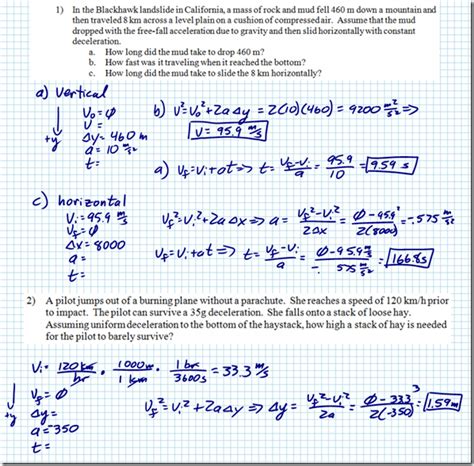 1) In the Blackhawk landslide in California, a mass of rock and mud fell 460 m down a mountain and
then traveled 8 km across a level plain on a cushion of compressed air. Assume that the mud
dropped with the free-fall acceleration due to gravity and then slid horizontally with constant
deceleration.
a. How long did the mud take to drop 460 m?
b. How fast was it traveling when it reached the bottom?
c. How long did the mud take to slide the 8 km horizontally?
a) vertical
+y
V₀ = φ
V =
Δy = 460 m
a = 10 m/s²
t =
b) V² = V₀² + 2aΔy = 2(10)(460) = 9200 m²/s² ⇒
V = 95.9 m/s
a) V_f = V_i + at ⇒ t = (V_f - V_i)/a = 95.9/10 = 9.59 s
c) horizontal
V_i = 95.9 m/s
V_f = φ
Δx = 8000
a =
t =
V_f² = V_i² + 2aΔx ⇒ a = (V_f² - V_i²)/2Δx = (φ - 95.9²)/2(8000) = -.575 m/s²
V_f = V_i + at ⇒ t = (V_f - V_i)/a = (φ - 95.9 m/s)/(-.575 m/s²) = 166.8 s
2) A pilot jumps out of a burning plane without a parachute. She reaches a speed of 120 km/h prior
to impact. The pilot can survive a 35g deceleration. She falls onto a stack of loose hay.
Assuming uniform deceleration to the bottom of the haystack, how high a stack of hay is needed
for the pilot to barely survive?
V_i = 120 km/hr · 1000 m/1 km · 1 hr/3600 s = 33.3 m/s
+y
V_f = φ
Δy =
a = -350
t =
V_f² = V_i² + 2aΔy ⇒ Δy = (V_f² - V_i²)/2a = (φ - 33.3²)/2(-350) = 1.59 m